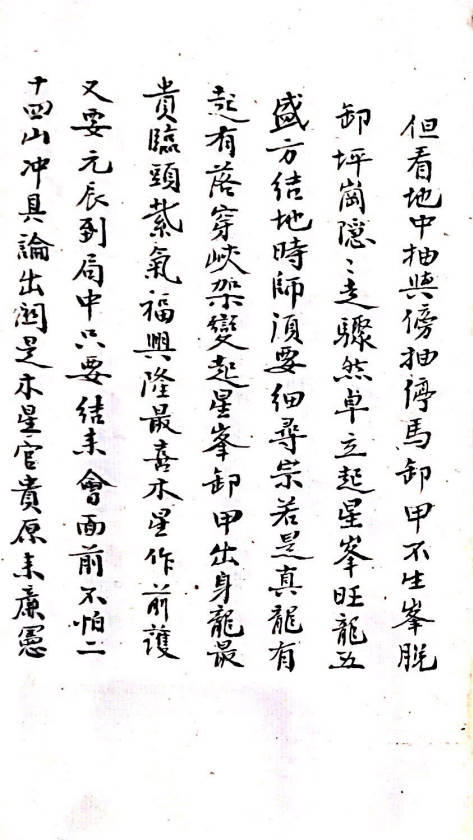 但看地中抽與傍抽停馬卸甲不生峯脱
卸坪崗隱〻走驟然卓立起星峯旺龍五
盛方結地時師須要細尋宗若是真龍有
起有落穿峽架變起星峯卸甲出身龍最
貴臨頭紫氣福興隆最喜木星作前護
又要元辰到局中只要結未會面前不怕二
十四山冲具論出洞是木星官貴原未廉憲